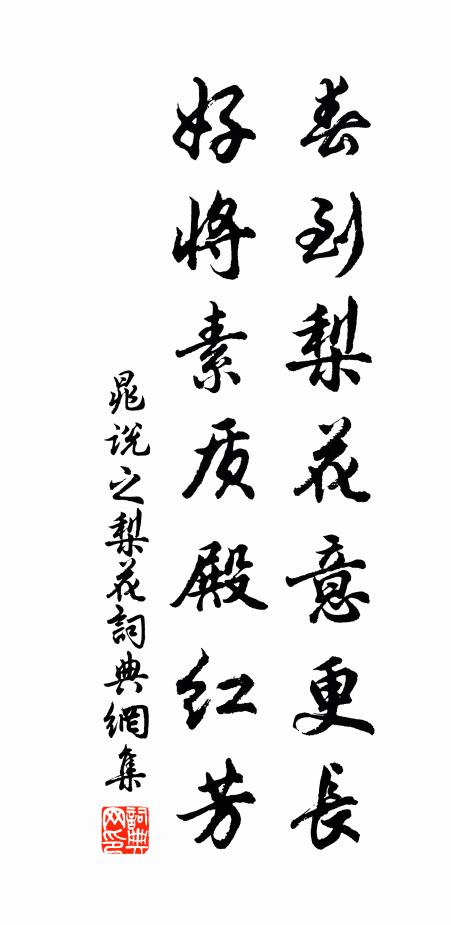 春到梨花意更長
好將素质殿红芳
晁说之梨花詞典網集
詞典网印